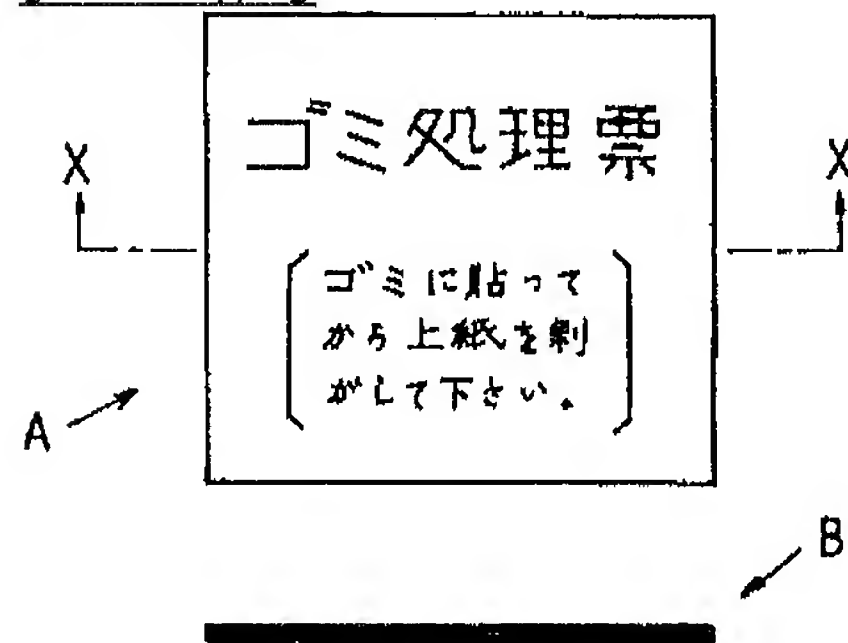 ゴミ処理票
X X
ゴミに貼って
から上紙を剝
がして下さい。
A
B